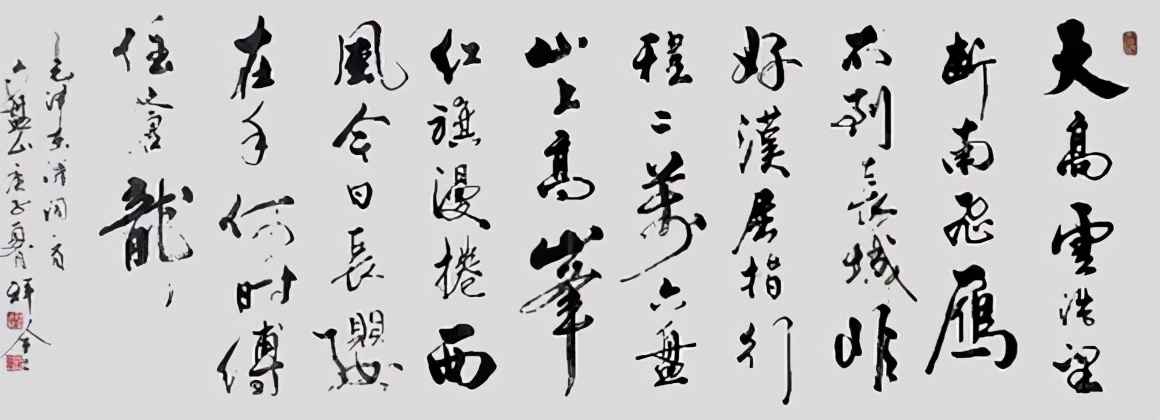 天高雲浩望
断南飛雁
不到長城非
好漢屈指行
程二萬六盤
山上高峯
紅旗漫捲西
風今日長纓
在手何時縛
住蒼龍
毛泽东
六盤山庚子夏月